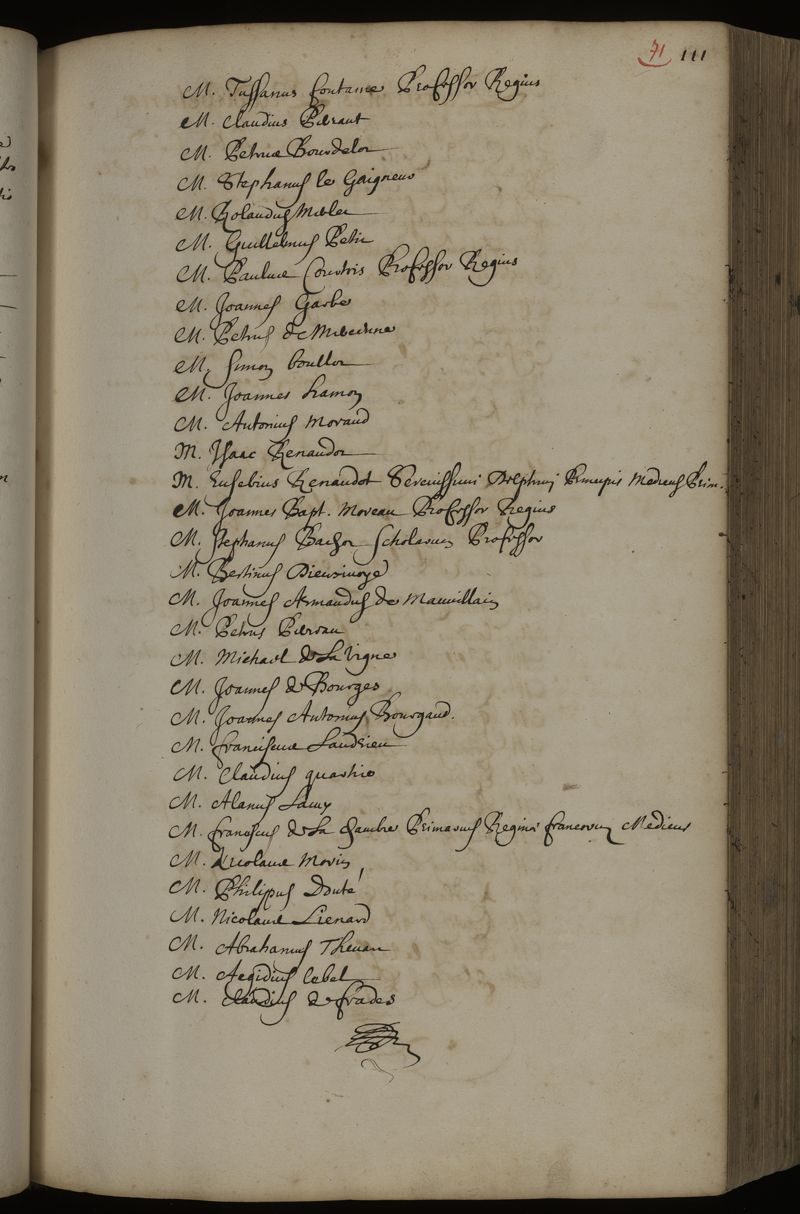 71 111
M. Tussanus fontaine Professor Regius
M. Claudius Perraut
M. Petrus Bourdelot
M. Stephanus le Gaigneur
M. Rolandus Merlet
M. Guillelmus Petit
M. Paulus Courtois Professor Regius
M. Joannes Garbe
M. Petrus de Mercenne
M. Simon boullot
M. Joannes hamon
M. Antonius Morand
M. Isaac Renaudot
M. Eusebius Renaudot Serenissimi Delphini Principis Medicus Prim.
M. Joannes Bapt. Moreau Professor Regius
M. Stephanus Bachot Scholarum Professor
M. Bertinus Dieuxivoye
M. Joannes Armandus de Mauvillain
M. Petrus Perreau
M. Michael de La Vigne
M. Joannes de Bourges
M. Joannes Antonius Bourgaud.
M. franciscus Landrieu
M. Claudius quartier
M. Alanus Lamy
M. franciscus de La Chambre Primarius Reginæ francorum Medicus
M. Nicolaus Morin
M. Philippus Douté
M. Nicolaus Lienard
M. Abrahamus Thevart
M. Aegidius lebel
M. Claudius de frades